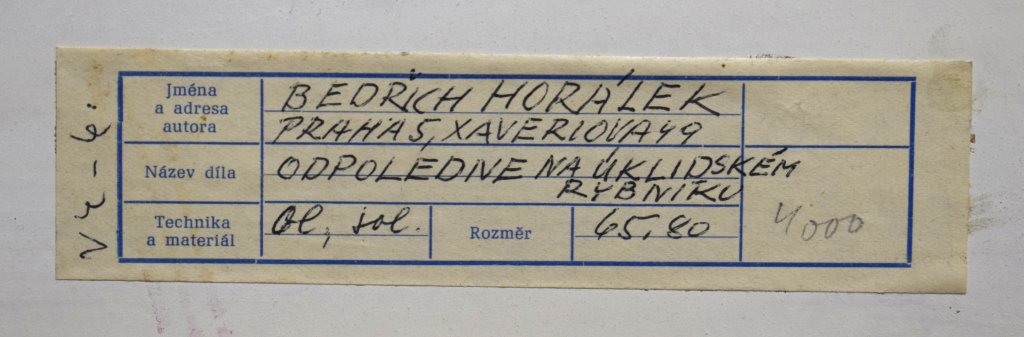 Jména
a adresa
autora
BEDŘICH HORÁLEK
PRAHA 5, XAVERIOVA 49
Název díla
ODPOLEDNE NA ÚKLIDSKÉM
RYBNÍKU
Technika
a materiál
Ol, sol.
Rozměr
65,80
4000